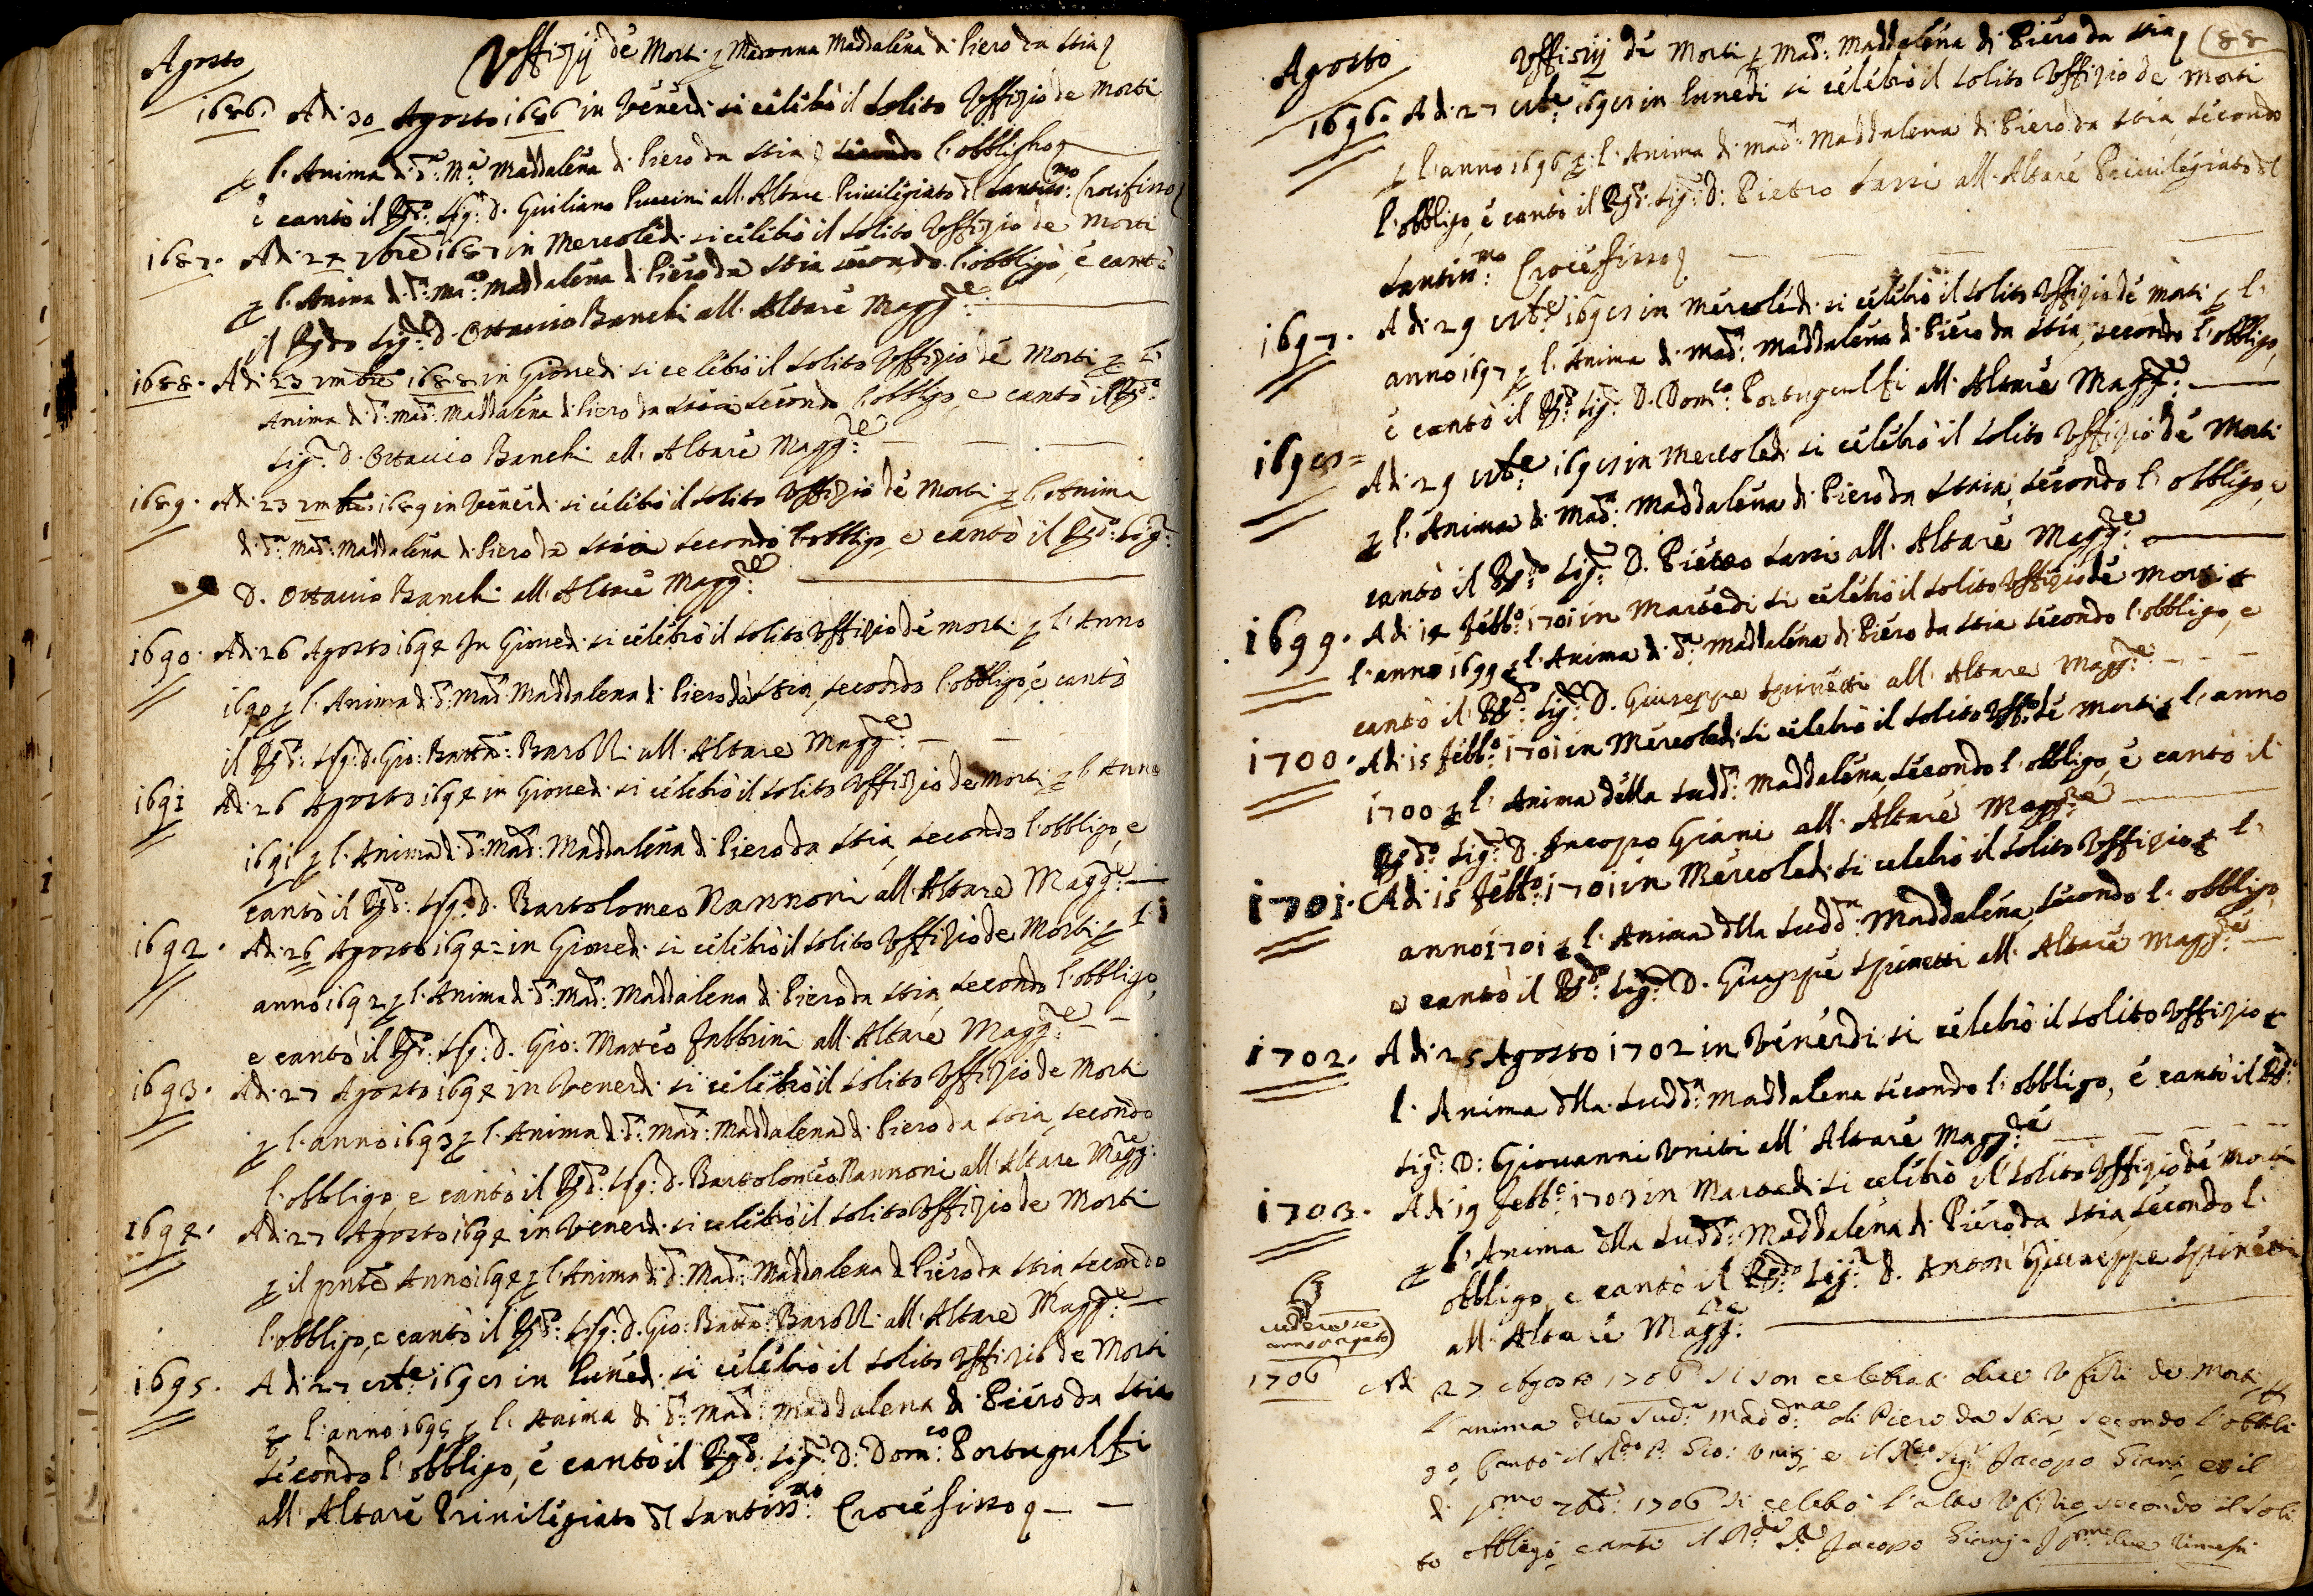 Agosto
Uffizij de Morti p Madonna Maddalena di Piero da Stia
1686. Adi 30 Agosto 1686 in Venerdi si celebrò il solito Uffizio de Morti
p l'Anima di d.ª M.ª Maddalena di Piero da Stia secondo l'obbligho
e cantò il Rdo: Sig.r D. Guiliano Puccini all'Altare Privilegiato del Santiss.mo Crocifisso
1687. Adi 24 7bre 1687 in Mercoledi si celebrò il solito Uffizio de Morti
p l'Anima di d.ª Mad.ª Maddalena di Piero da Stia secondo l'obbligo, e cantò
il Rdo Sig.r D. Ottavio Banchi all'Altare Magg.re
1688. Adi 23 xmbre 1688 in Giovedi si celebrò il solito Uffizio de Morti p l'
Anima di d.ª Mad.ª Maddalena di Piero da Stia secondo l'obbligo, e cantò il Rdo:
Sig.r D. Ottavio Banchi all'Altare Magg.re
1689. Adi 23 xmbre 1689 in Venerdi si celebrò il solito Uffizio de Morti p l'Anima
di d.ª Mad.ª Maddalena di Piero da Stia secondo l'obbligo, e cantò il Rdo: Sig.r
D. Ottavio Banchi all'Altare Magg.re
1690. Adi 26 Agosto 1694 In Giovedi si celebrò il solito Uffizio de morti p l'Anno
1690 p l'Anima di d.ª Mad.ª Maddalena di Piero da Stia, secondo l'obbligo, e cantò
il Rdo: Sig.r D. Gio: Batta: Baroni all'Altare Magg.re
1691 Adi 26 Agosto 1694 in Giovedi si celebrò il solito Uffizio de Morti p l'Anno
1691 p l'Anima di d.ª Mad.ª Maddalena di Piero da Stia, secondo l'obbligo, e
cantò il Rdo: Sig.r D. Bartolomeo Nannoni all'Altare Magg.re
1692. Adi 26 Agosto 1694 in Giovedi si celebrò il solito Uffizio de Morti p l'
anno 1692 p l'Anima di d.ª Mad.ª Maddalena di Piero da Stia, secondo l'obbligo,
e cantò il Rdo: Sig.r D. Gio: Matteo Fabbrini all'Altare Magg.re
1693. Adi 27 Agosto 1694 in Venerdi si celebrò il solito Uffizio de Morti
p l'anno 1693 p l'Anima di d.ª Mad.ª Maddalena di Piero da Stia, secondo
l'obbligo, e cantò il Rdo: Sig.r D. Bartolomeo Nannoni all'Altare Magg.re
1694. Adi 27 Agosto 1694 in Venerdi si celebrò il solito Uffizio de Morti
p il pnte Anno 1694 p l'Anima di d.ª Mad.ª Maddalena di Piero da Stia, secondo
l'obbligo, e cantò il Rdo: Sig.r D. Gio: Batta: Baroni all'Altare Magg.re
1695. Adi 27 8bre 1698 in Lunedi si celebrò il solito Uffizio de Morti
p l'anno 1695 p l'Anima di d.ª Mad.ª Maddalena di Piero da Stia
secondo l'obbligo, e cantò il Rdo: Sig.r D: Dom.co Portugalli
all'Altare Privilegiato del Santiss.mo Crocefisso
Agosto
Uffizij de Morti p Mad.ª Maddalena di Piero da Stia
88
1696. Adi 27 8bre 1698 in Lunedi si celebrò il solito Uffizio de Morti
p l'anno 1696 p l'Anima di Mad.ª Maddalena di Piero da Stia, secondo
l'obbligo, e cantò il Rdo: Sig.r D: Pietro Sassi all'Altare Privilegiato del
Santiss.mo Crocefisso
1697. Adi 29 8bre 1698 in Mercoledi si celebrò il solito Uffizio de Morti p l'
anno 1697 p l'Anima di Mad.ª Maddalena di Piero da Stia, secondo l'obbligo,
e cantò il Rdo: Sig.r D. Dom.co Portugalli all'Altare Magg.re
1698= Adi 29 8bre 1698 in Mercoledi si celebrò il solito Uffizio de Morti
p l'Anima di Mad.ª Maddalena di Piero da Stia, secondo l'obbligo, e
cantò il Rdo: Sig.r D. Pietro Sassi all'Altare Magg.re
1699. Adi 14 Febb.o 1701 in Martedi si celebrò il solito Uffizio de Morti p
l'anno 1699 p l'Anima di d.ª Maddalena di Piero da Stia secondo l'obbligo, e
cantò il Rdo: Sig.r D. Giuseppe Spinetti all'Altare Magg.re
1700. Adi 15 Febb.o 1701 in Mercoledi si celebrò il solito Uff.o de Morti p l'anno
1700 p l'Anima della Sudd.ª Maddalena, secondo l'obbligo, e cantò il
Rdo: Sig.r D. Jacopo Giani all'Altare Magg.re
1701. Adi 15 Febb.o 1701 in Mercoledi si celebrò il solito Uffizio p l'
anno 1701 p l'Anima della Sudd.ª Maddalena, secondo l'obbligo,
e cantò il Rdo: Sig.r D. Giuseppe Spinetti all'Altare Magg.re
1702. Adi 25 Agosto 1702 in Venerdi si celebrò il solito Uffizio p
l'Anima della Sudd.ª Maddalena secondo l'obbligo, e cantò il Rdo:
Sig.r D: Giovanni Uniti all'Altare Magg.re
1703. Adi 19 Febb.o 1703 in Martedi si celebrò il solito Uffizio de Morti
p l'Anima della Sudd.ª Maddalena di Piero da Stia, secondo l'
obbligo, e cantò il Rdo: Sig.r D. Anton Giuseppe Spinetti
all'Altare Magg.re
1706 Adi 27 Agosto 1706 si son celebrati due Ufizi de Morti p
l'anima della Sud.ª Madd.na di Piero da Stia, secondo l'obbli
go, cantò il Rdo P. Gio: Uniti e il Rdo Sig.r Jacopo Giani, et il
di pmo 7bre 1706 si celebrò l'altro Ufizio secondo il soli
to obbligo, cantò il Rdo Jacopo Giani